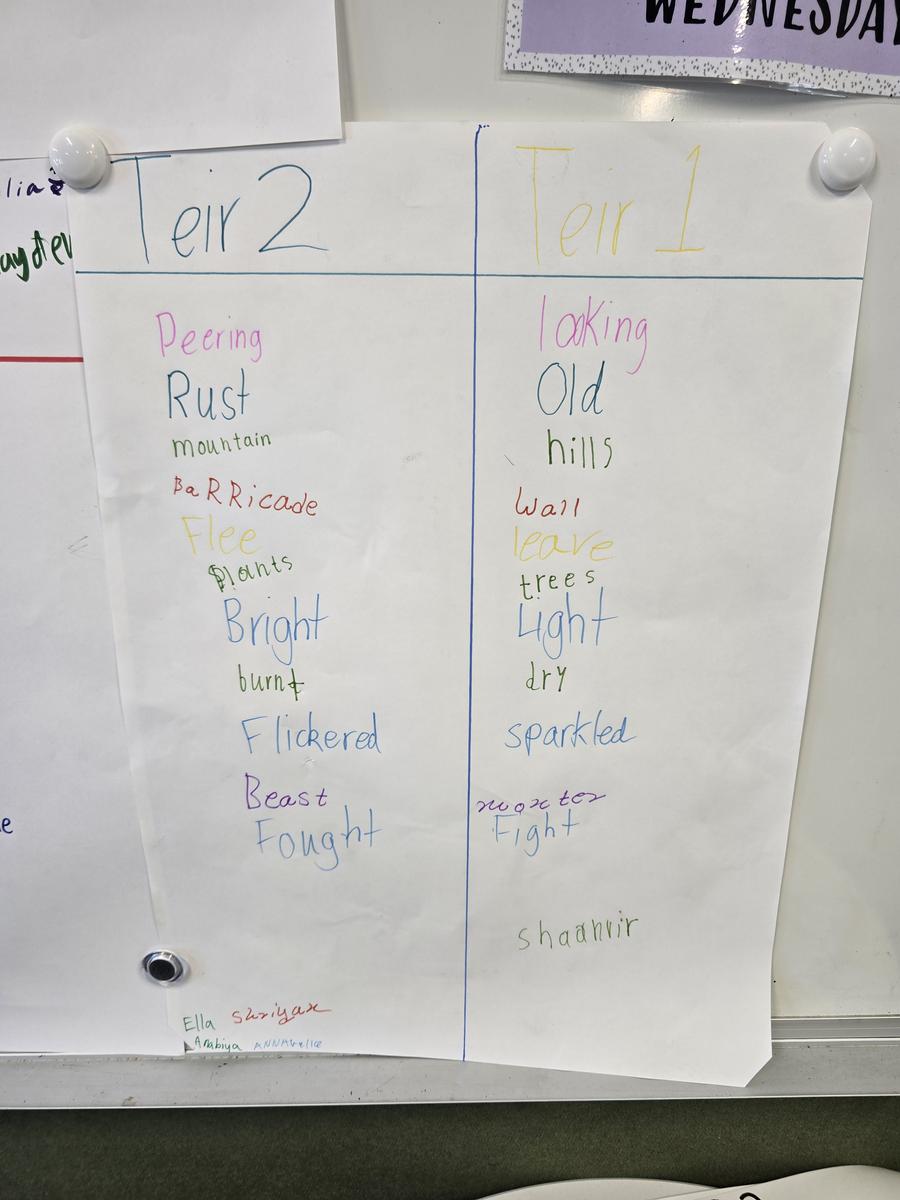 WEDNESDAY
lia
Teir 2
Teir 1
Peering
looking
Rust
Old
mountain
hills
BaRRicade
Wall
Flee
leave
plants
trees
Bright
Light
burnt
dry
Flickered
sparkled
Beast
Fought
Fight
shaanvir
Ella Shriyax
Arabiya ANNAbelle
e